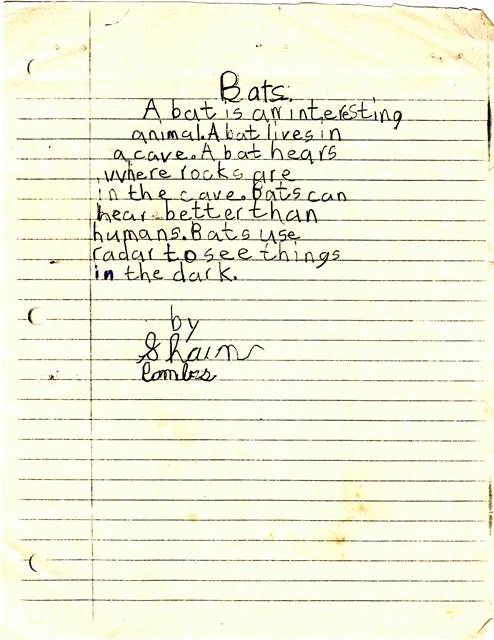 Bats.
A bat is an interesting
animal. A bat lives in
a cave. A bat hears
where rocks are
in the cave. Bats can
hear better than
humans. Bats use
radar to see things
in the dark.
by
Shain
Combs